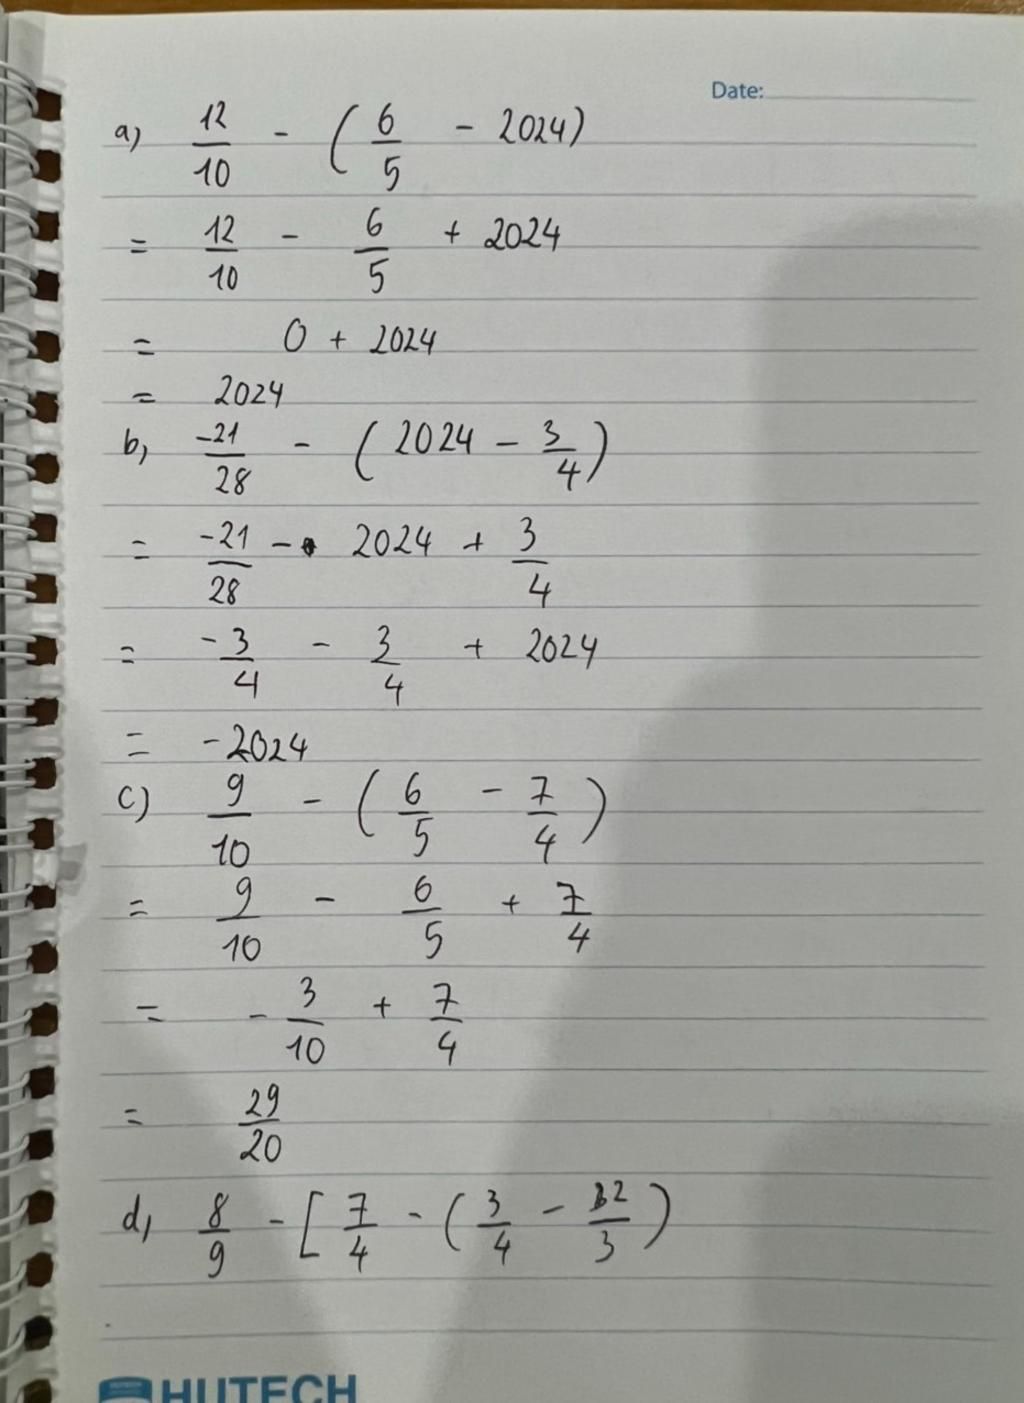 Date:
a) 12/10 - (6/5 - 2024)
= 12/10 - 6/5 + 2024
= 0 + 2024
= 2024
b, -21/28 - (2024 - 3/4)
= -21/28 - 2024 + 3/4
= -3/4 - 3/4 + 2024
= -2024
c) 9/10 - (6/5 - 7/4)
= 9/10 - 6/5 + 7/4
= - 3/10 + 7/4
= 29/20
d, 8/9 - [7/4 - (3/4 - /3)
HUTECH